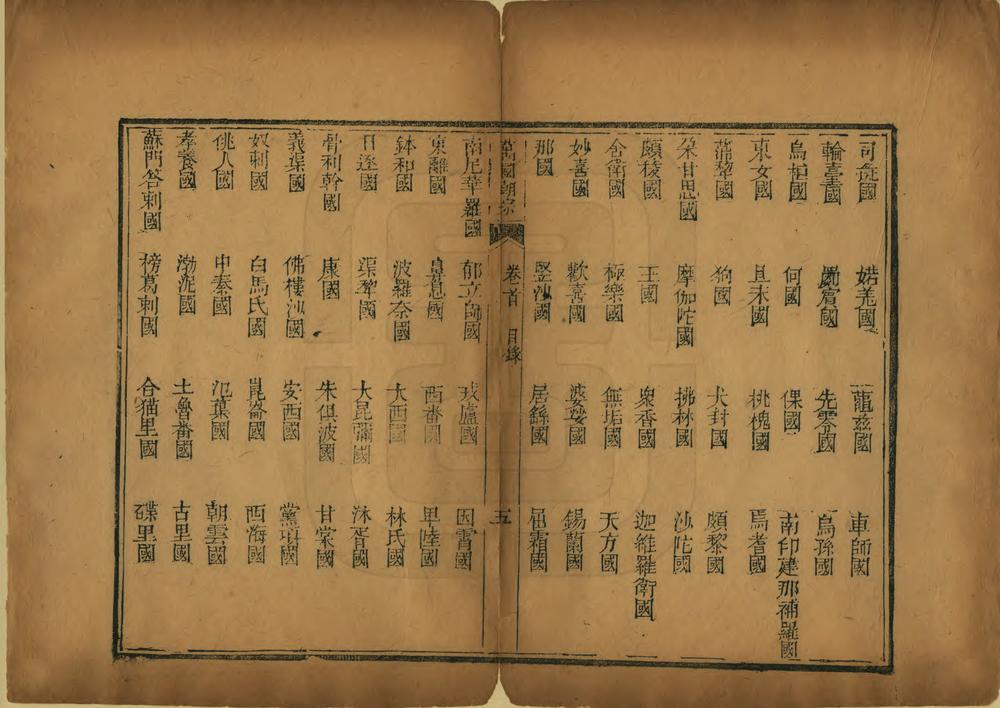 司彘國 婼羌國 龍茲國 車師國
輪臺國 罽賓國 先零國 烏孫國
烏秅國 何國 倮國 南印建那補羅國
東女國 且末國 桃槐國 焉耆國
蒲犁國 狗國 犬封國 頗黎國
朵甘思國 摩伽陀國 拂林國 沙陀國
頗稜國 王國 衆香國 迦維羅衛國
舍衛國 極樂國 無垢國 天方國
妙喜國 歡喜國 婆娑國 錫蘭國
那國 堅沙國 居繇國 屈霜國
萬國朝宗 卷首 目錄 五
南尼華羅國 郁立師國 戎盧國 因霄國
東離國 皐息國 西番國 卑陸國
鉢和國 波羅奈國 大西國 林氏國
日逐國 渠犂國 大昆彌國 沐胥國
骨利幹國 康國 朱俱波國 甘棠國
義渠國 佛樓沙國 安西國 黨項國
奴剌國 白馬氏國 崑崙國 西海國
佻人國 申秦國 氾葉國 朝雲國
孝養國 渤泥國 土魯番國 古里國
蘇門答剌國 榜葛剌國 合貓里國 碟里國